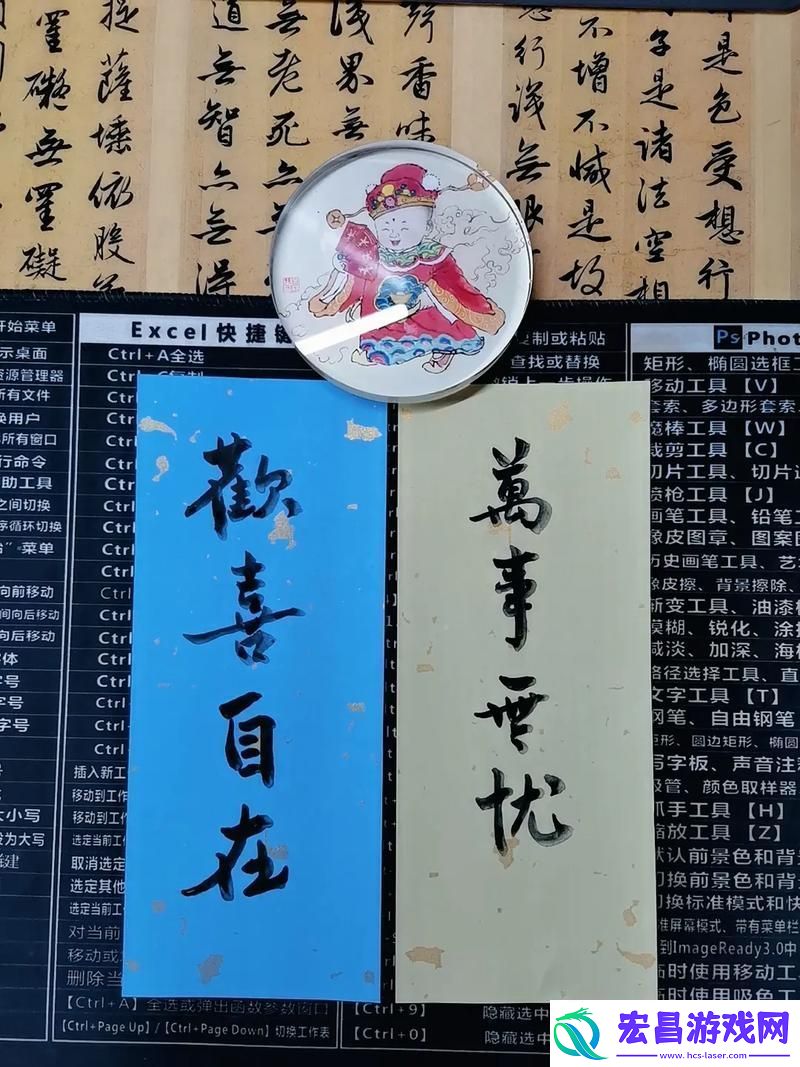 是色受想行
子是諸法空相
不增不減是故
想行識無眼
聲香味
識界無
無老死亦無
道無智亦無得
提薩埵依般
罣礙無罣礙
歡喜自在
萬事無忧
开始菜单
示桌面
资源管理器
所有文件
换用户
所有窗口
行命令
助工具
之间切换
序循环切换
”菜单
向前移动
间向后移动
向后移动
体
字号
字号
字号
大小写
为大写
Excel 快捷键
Ctrl+A全选
插入新工
移动到工作
移动到工作
选定当前工
取消选定
选定其他
选定当前工
对当前
移动或
删除当
【Ctrl+A】全选或弹出函数参数窗口
【Ctrl+Page Up】/【Ctrl+Page Down】切换工作表
复制或粘贴
查找或替换
【Ctrl+9】
隐藏选中
【Ctrl+0】
隐藏选中
Ps Phot
矩形、椭圆选框工
移动工具【V】
套索、多边形套索
魔棒工具【W】
裁剪工具【C】
切片工具、切片选
喷枪工具【J】
画笔工具、铅笔工
橡皮图章、图案图
历史画笔工具、艺
橡皮擦、背景擦除、
渐变工具、油漆桶
模糊、锐化、涂抹
减淡、加深、海绵
路径选择工具、直
文字工具【T】
钢笔、自由钢笔
矩形、圆边矩形、椭圆
写字板、声音注释
吸管、颜色取样器
抓手工具【H】
缩放工具【Z】
默认前景色和背
切换前景色和背
切换标准模式和快
标准屏幕模式、带有菜单栏
到ImageReady3.0中
临时使用移动工
临时使用吸色工
宏昌游戏网
www.hcs-laser.com